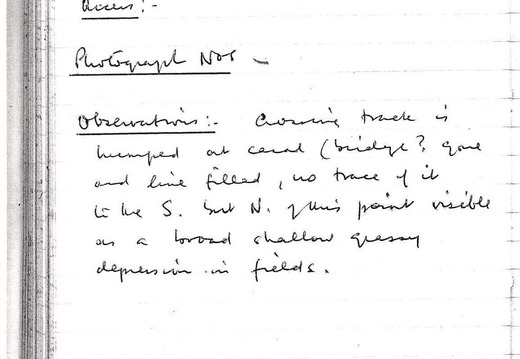 Access:-
Photograph Nos -
Observations:- Crossing track is
humped at canal (bridge? gone
and line filled, no trace of it
to the S. but N. of this point visible
as a broad shallow grassy
depression in fields.